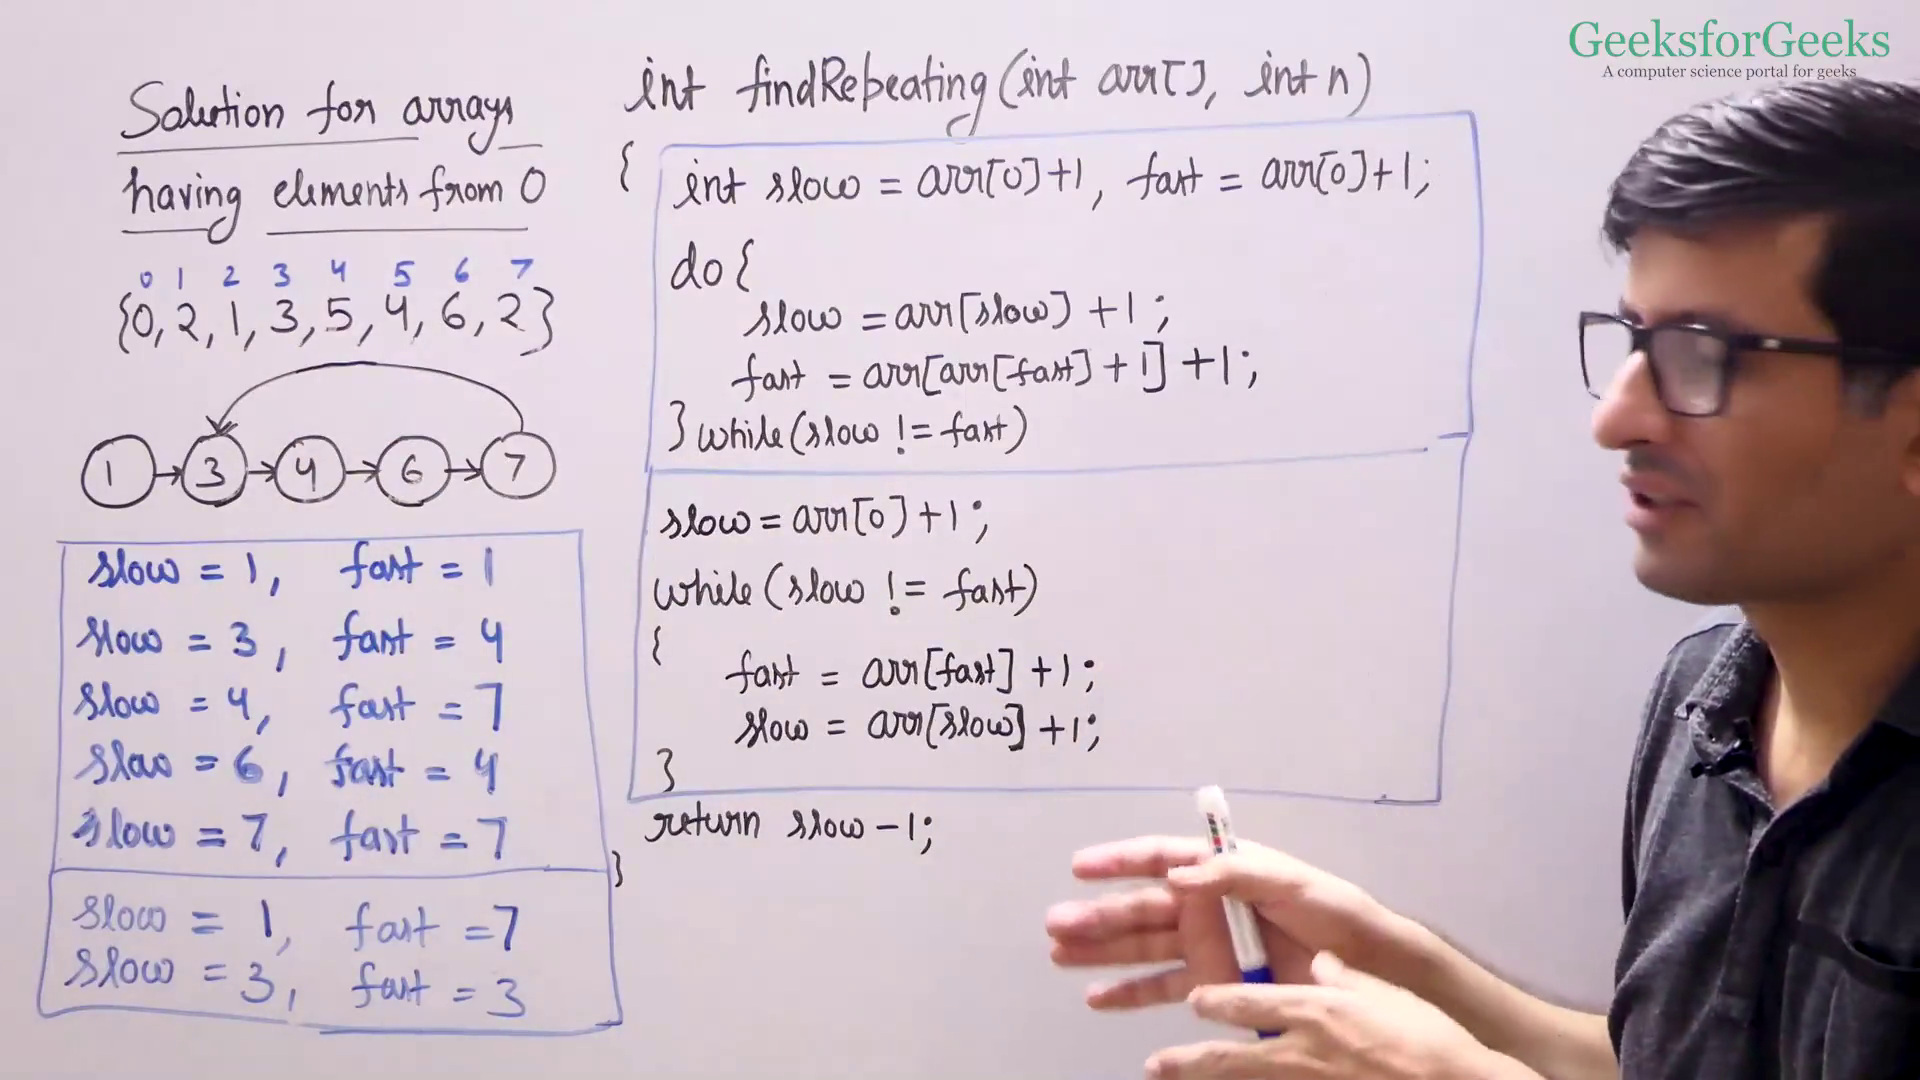 GeeksforGeeks
A computer science portal for geeks
Solution for arrays
having elements from 0
0 1 2 3 4 5 6 7
{0, 2, 1, 3, 5, 4, 6, 2}
1 → 3 → 4 → 6 → 7
slow = 1, fast = 1
slow = 3, fast = 4
slow = 4, fast = 7
slow = 6, fast = 4
slow = 7, fast = 7
slow = 1, fast = 7
slow = 3, fast = 3
int findRepeating(int arr[], int n)
{
int slow = arr[0]+1, fast = arr[0]+1;
do{
slow = arr[slow] +1;
fast = arr[arr[fast] + 1] +1;
} while(slow != fast)
slow = arr[0] +1;
while(slow != fast)
{
fast = arr[fast] +1;
slow = arr[slow] +1;
}
return slow -1;
}